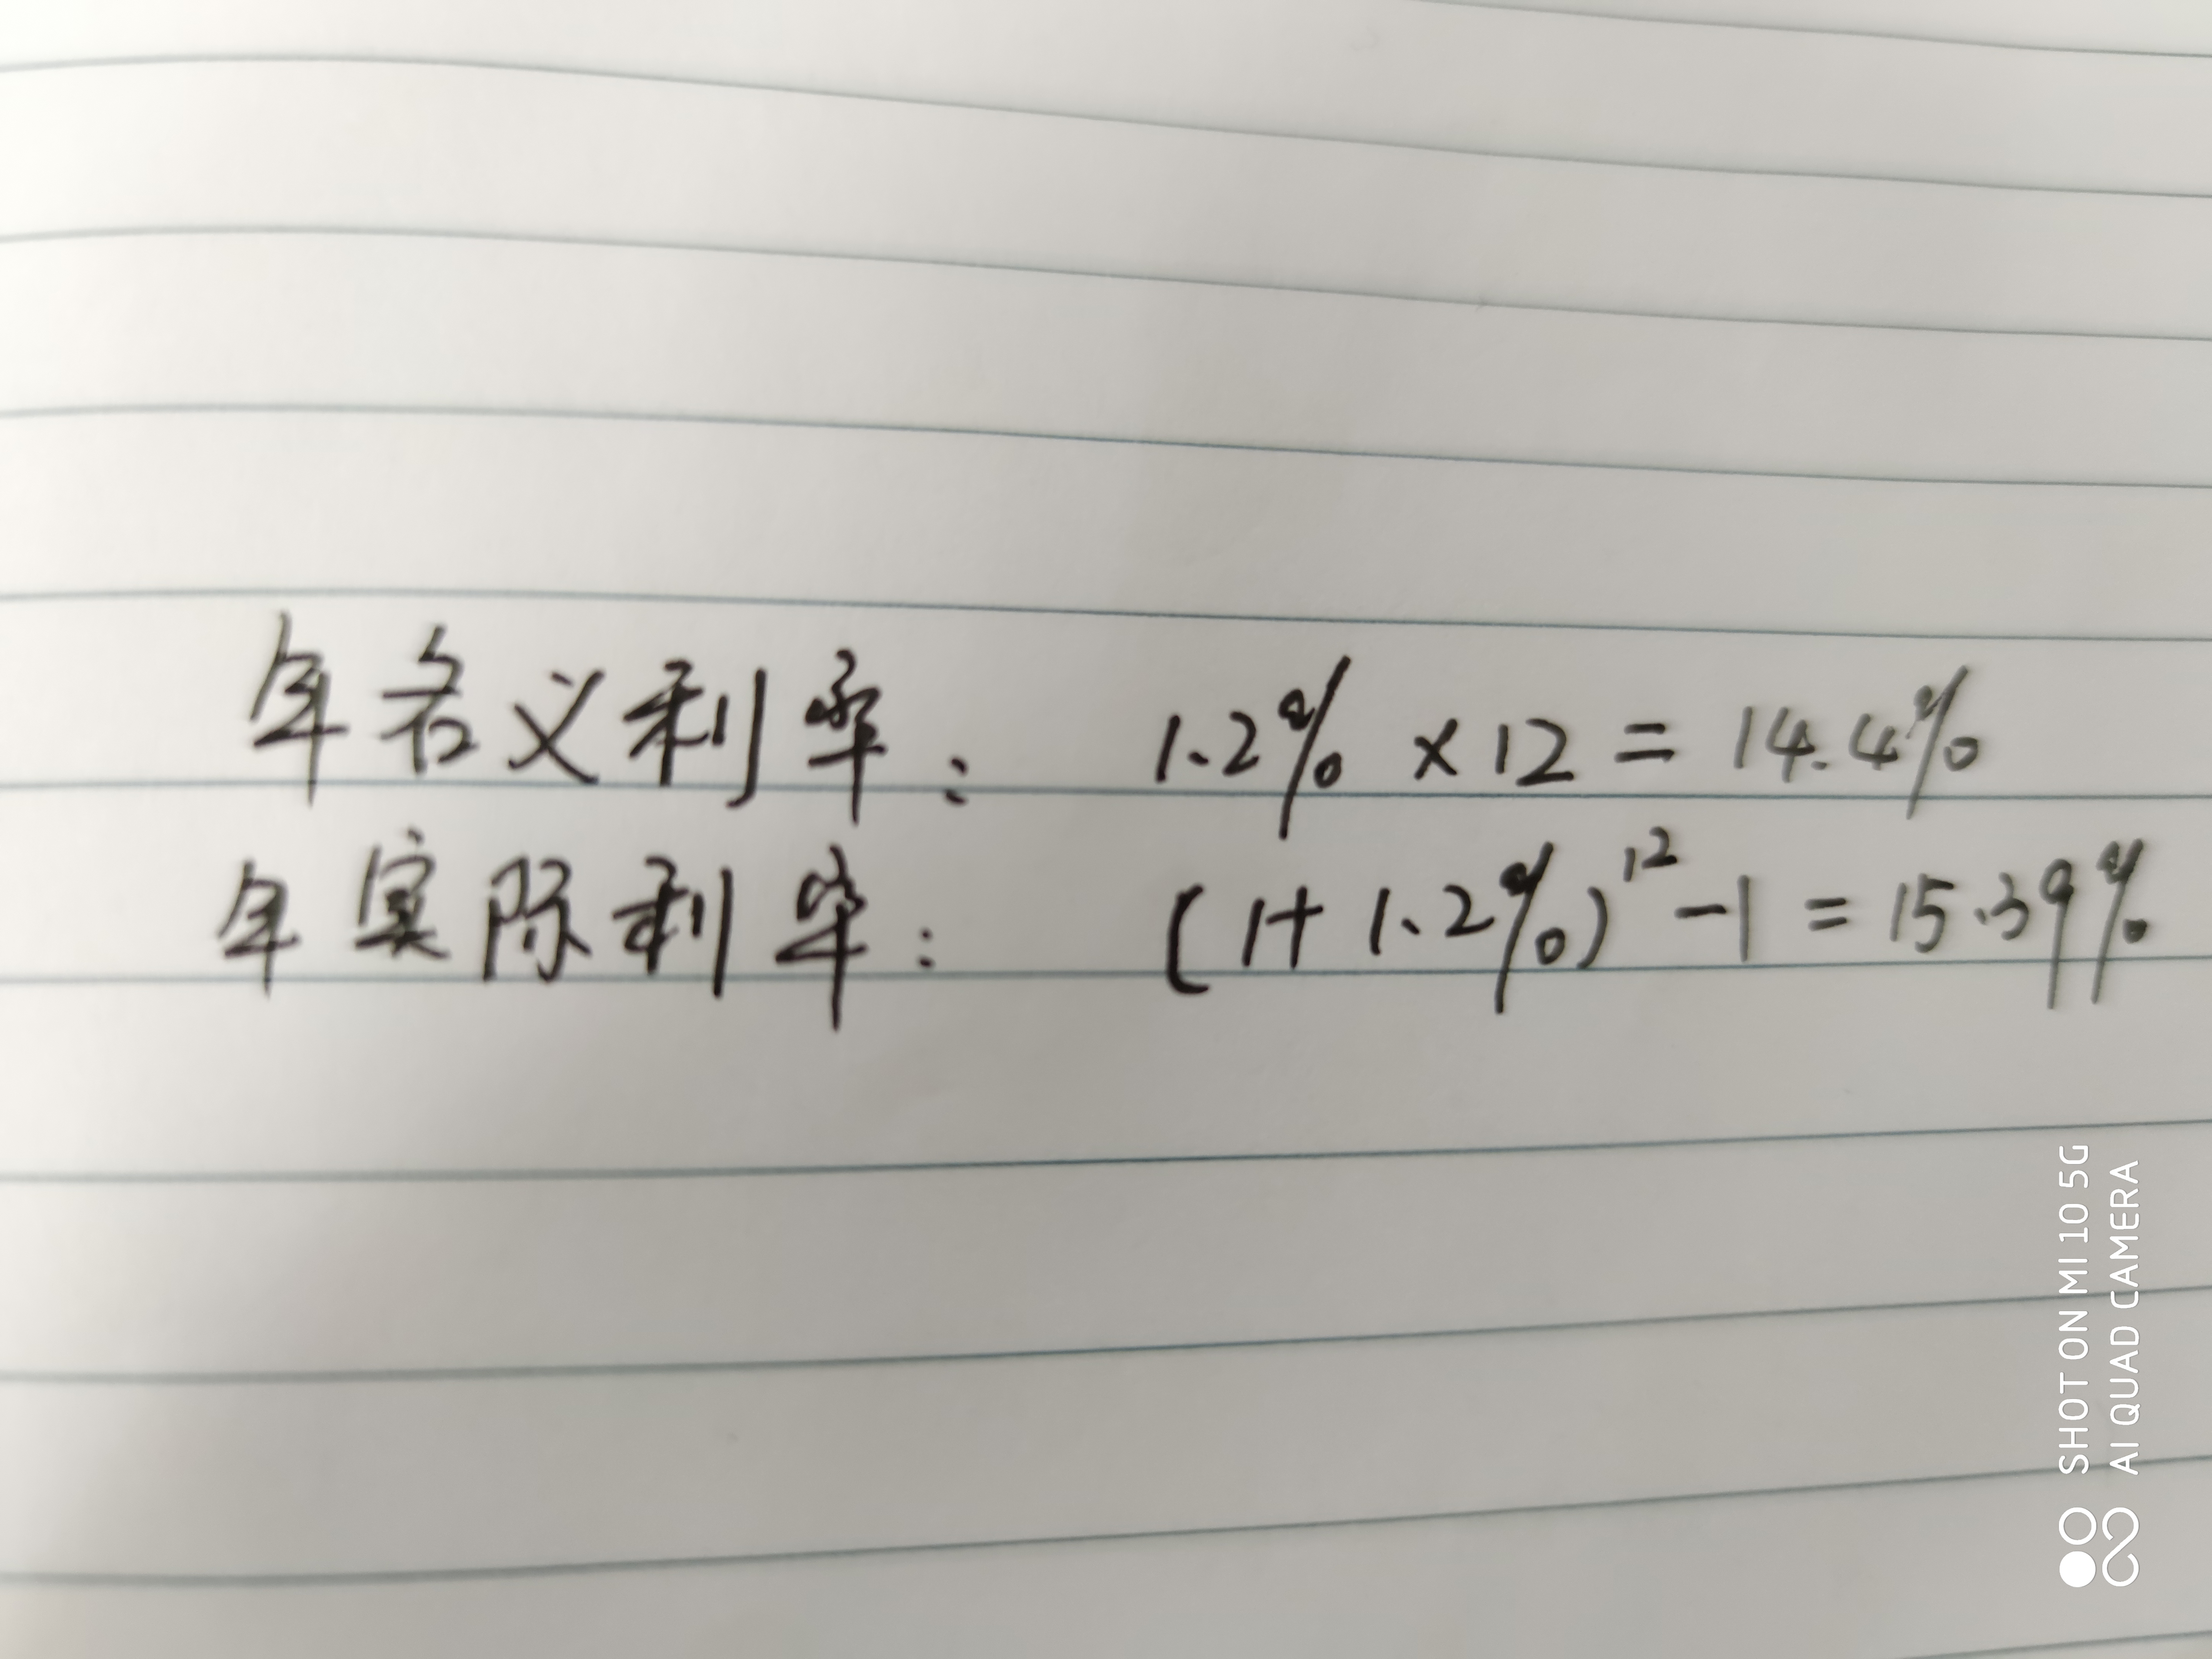 年名义利率： 1.2% × 12 = 14.4%
年实际利率： (1+1.2%)¹² -1 = 15.39%
SHOT ON MI 10 5G
AI QUAD CAMERA